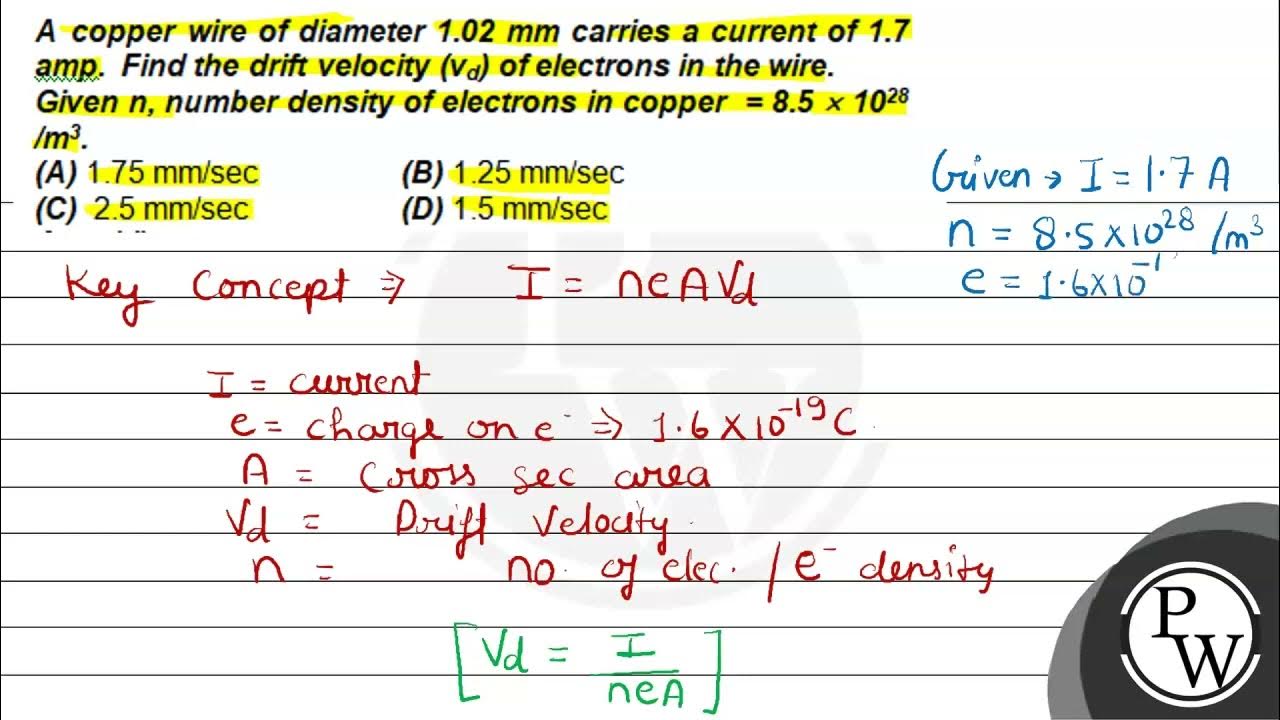 A copper wire of diameter 1.02 mm carries a current of 1.7
amp. Find the drift velocity (vd) of electrons in the wire.
Given n, number density of electrons in copper = 8.5 × 10²⁸
/m³.
(A) 1.75 mm/sec (B) 1.25 mm/sec
(C) 2.5 mm/sec (D) 1.5 mm/sec
Given → I = 1.7 A
n = 8.5×10²⁸ /m³
e = 1.6×10⁻¹
Key Concept ⇒ I = neAVd
I = current
e = charge on e⁻ ⇒ 1.6×10⁻¹⁹ C
A = Cross sec area
Vd = Drift Velocity
n = no. of elec. / e⁻ density
[Vd = I/neA]
PW
PW